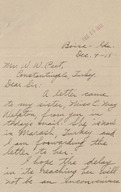 Boise - Ida.
Dec. 4 - 18
Mr. W. W. Peet,
Constantinople, Turkey.
Dear Sir:
A letter came
to my sister, Miss C. May
from you in
today's mail. She is now
in Marash, Turkey and
I am forwarding the
letter to her.
I hope the delay
in its reaching her will
not be an inconvenience